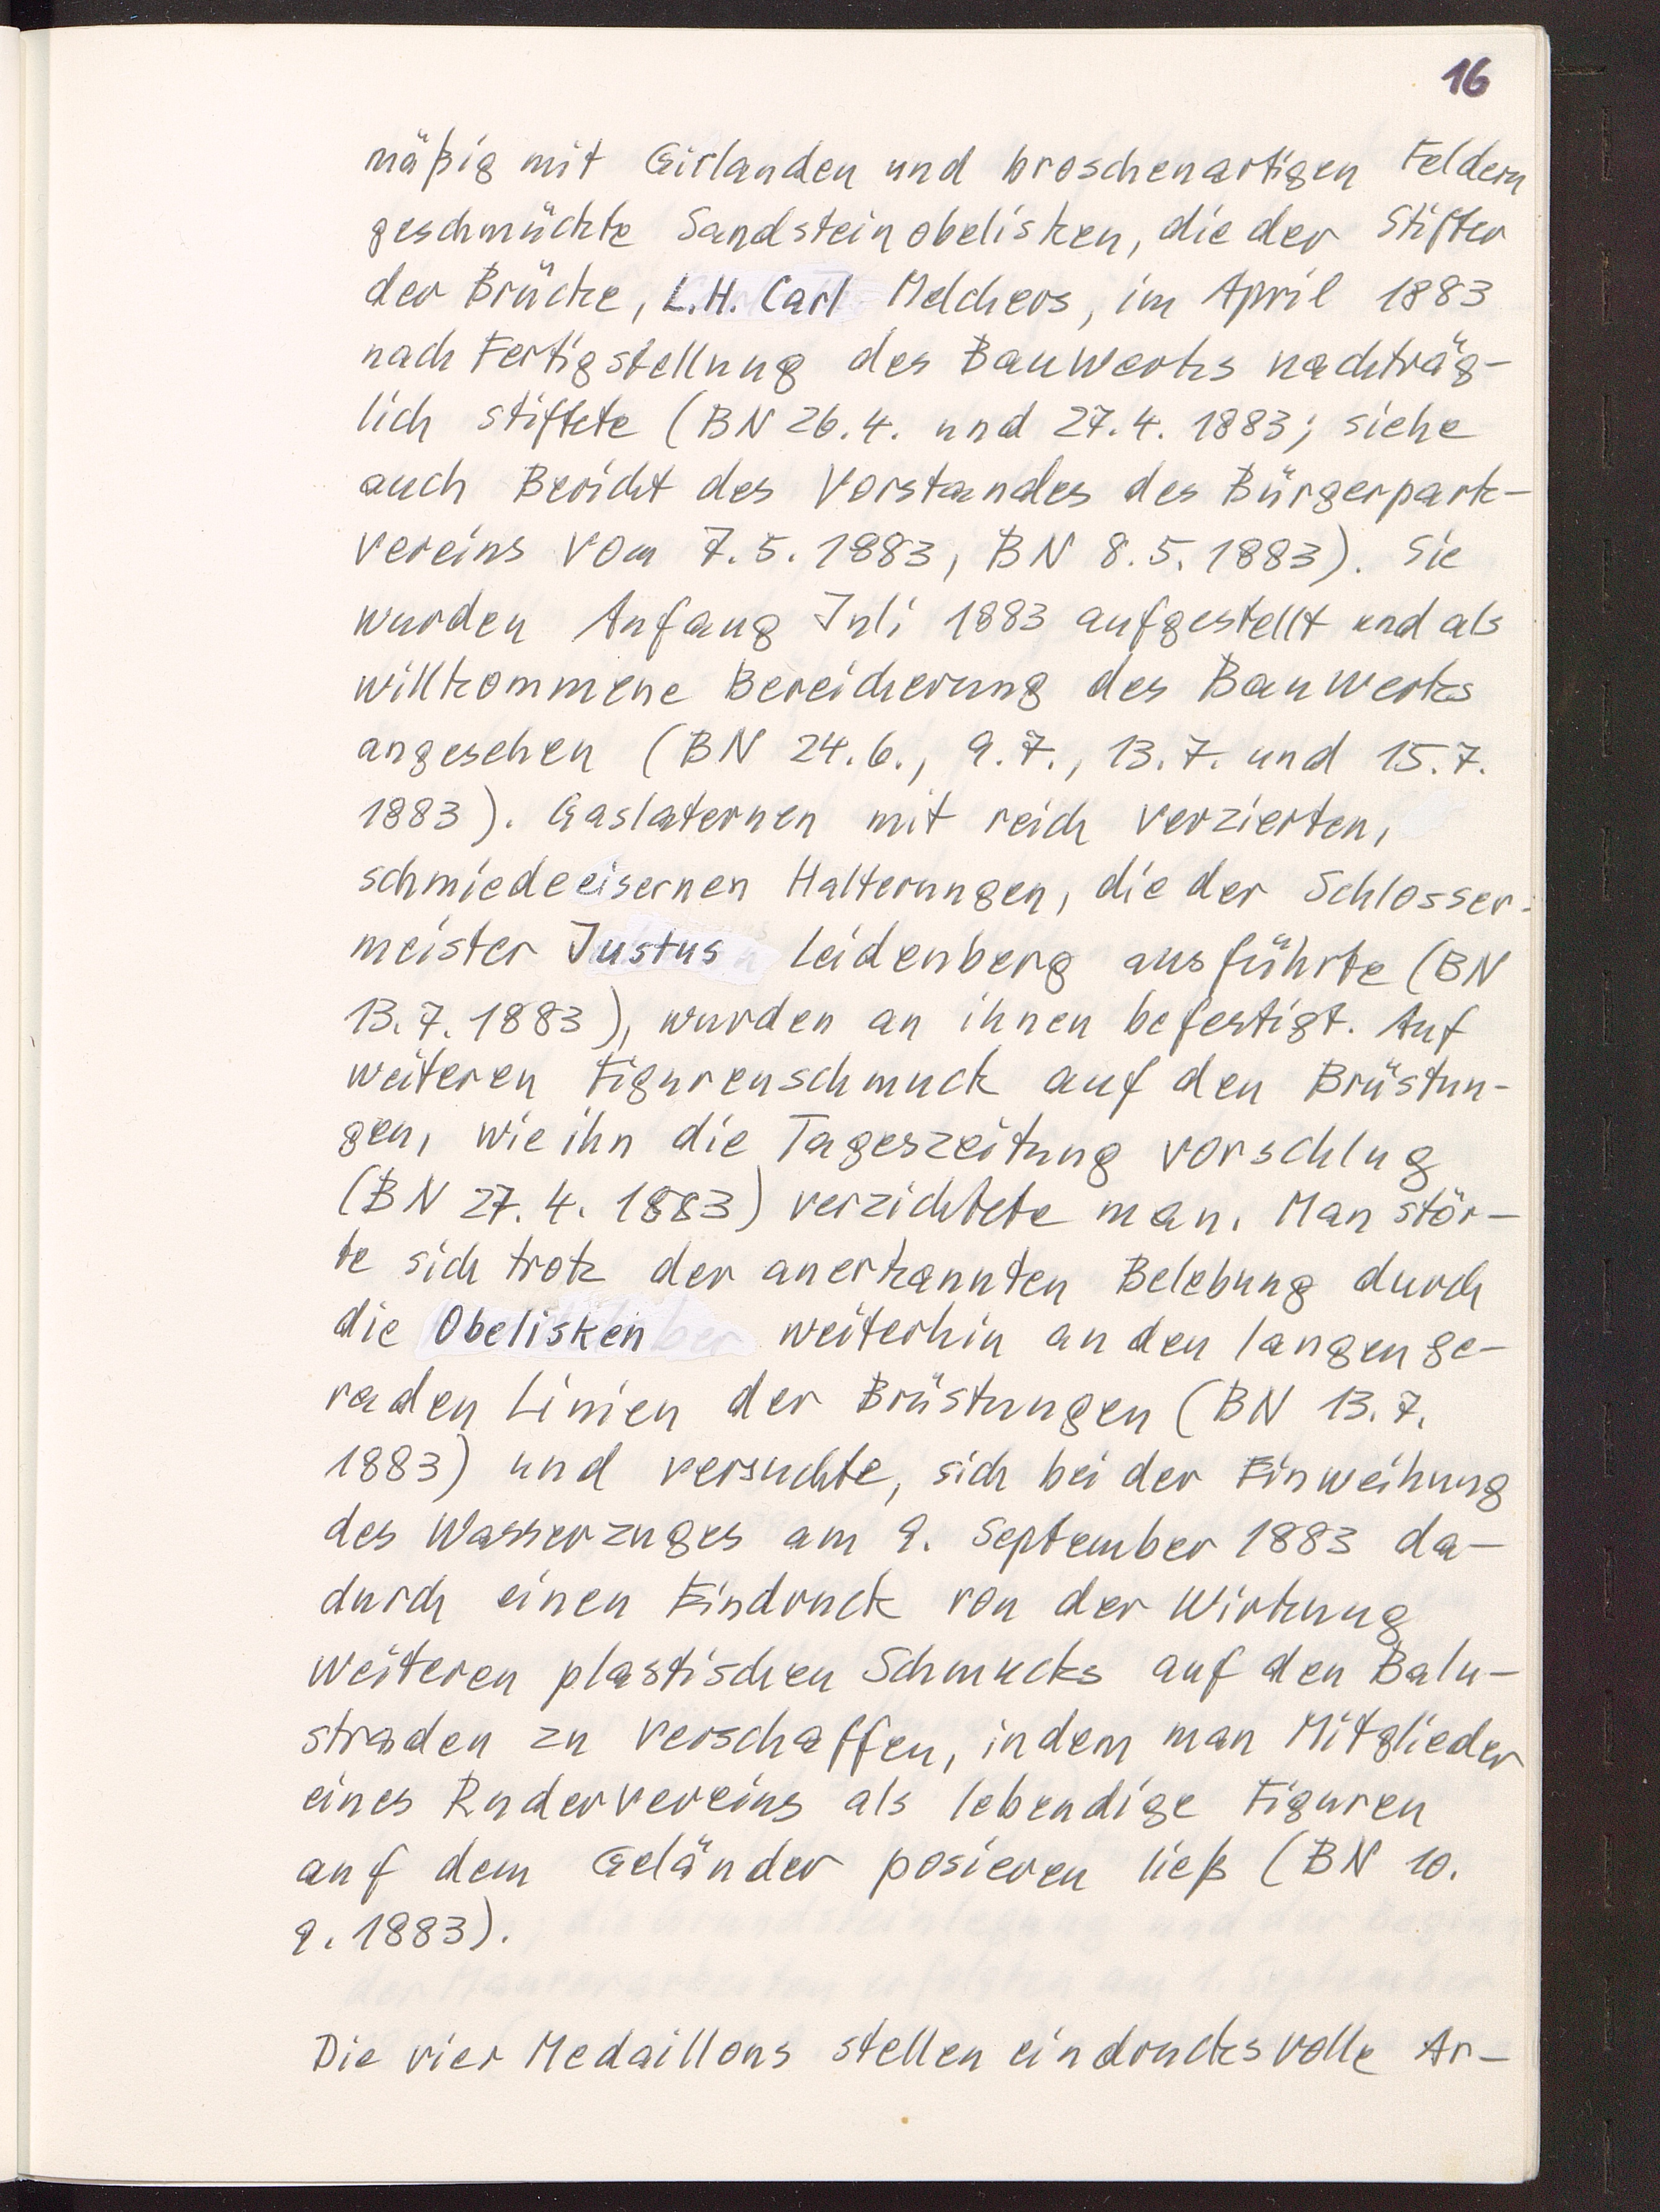 16
mäßig mit Girlanden und broschenartigen Feldern
geschmückte Sandsteinobelisken, die der Stifter
der Brücke, L.H. Carl Melchers, im April 1883
nach Fertigstellung des Bauwerks nachträg-
lich stiftete (BN 26.4. und 27.4. 1883; siehe
auch Bericht des Vorstandes des Bürgerpark-
vereins vom 7.5.1883, BN 8.5.1883). Sie
wurden Anfang Juli 1883 aufgestellt und als
willkommene Bereicherung des Bauwerks
angesehen (BN 24.6., 9.7., 13.7. und 15.7.
1883). Gaslaternen mit reich verzierten,
schmiedeeisernen Halterungen, die der Schlosser-
meister Justus Leidenberg ausführte (BN
13.7.1883), wurden an ihnen befestigt. Auf
weiteren Figurenschmuck auf den Brüstun-
gen, wie ihn die Tageszeitung vorschlug
(BN 27.4. 1883) verzichtete man. Man stör-
te sich trotz der anerkannten Belebung durch
die Obelisken weiterhin an den langen ge-
raden Linien der Brüstungen (BN 13.7.
1883) und versuchte, sich bei der Einweihung
des Wasserzuges am 9. September 1883 da-
durch einen Eindruck von der Wirkung
weiteren plastischen Schmucks auf den Balu-
straden zu verschaffen, indem man Mitglieder
eines Rudervereins als lebendige Figuren
auf dem Geländer posieren ließ (BN 10.
9.1883).
Die vier Medaillons stellen eindrucksvolle Ar-